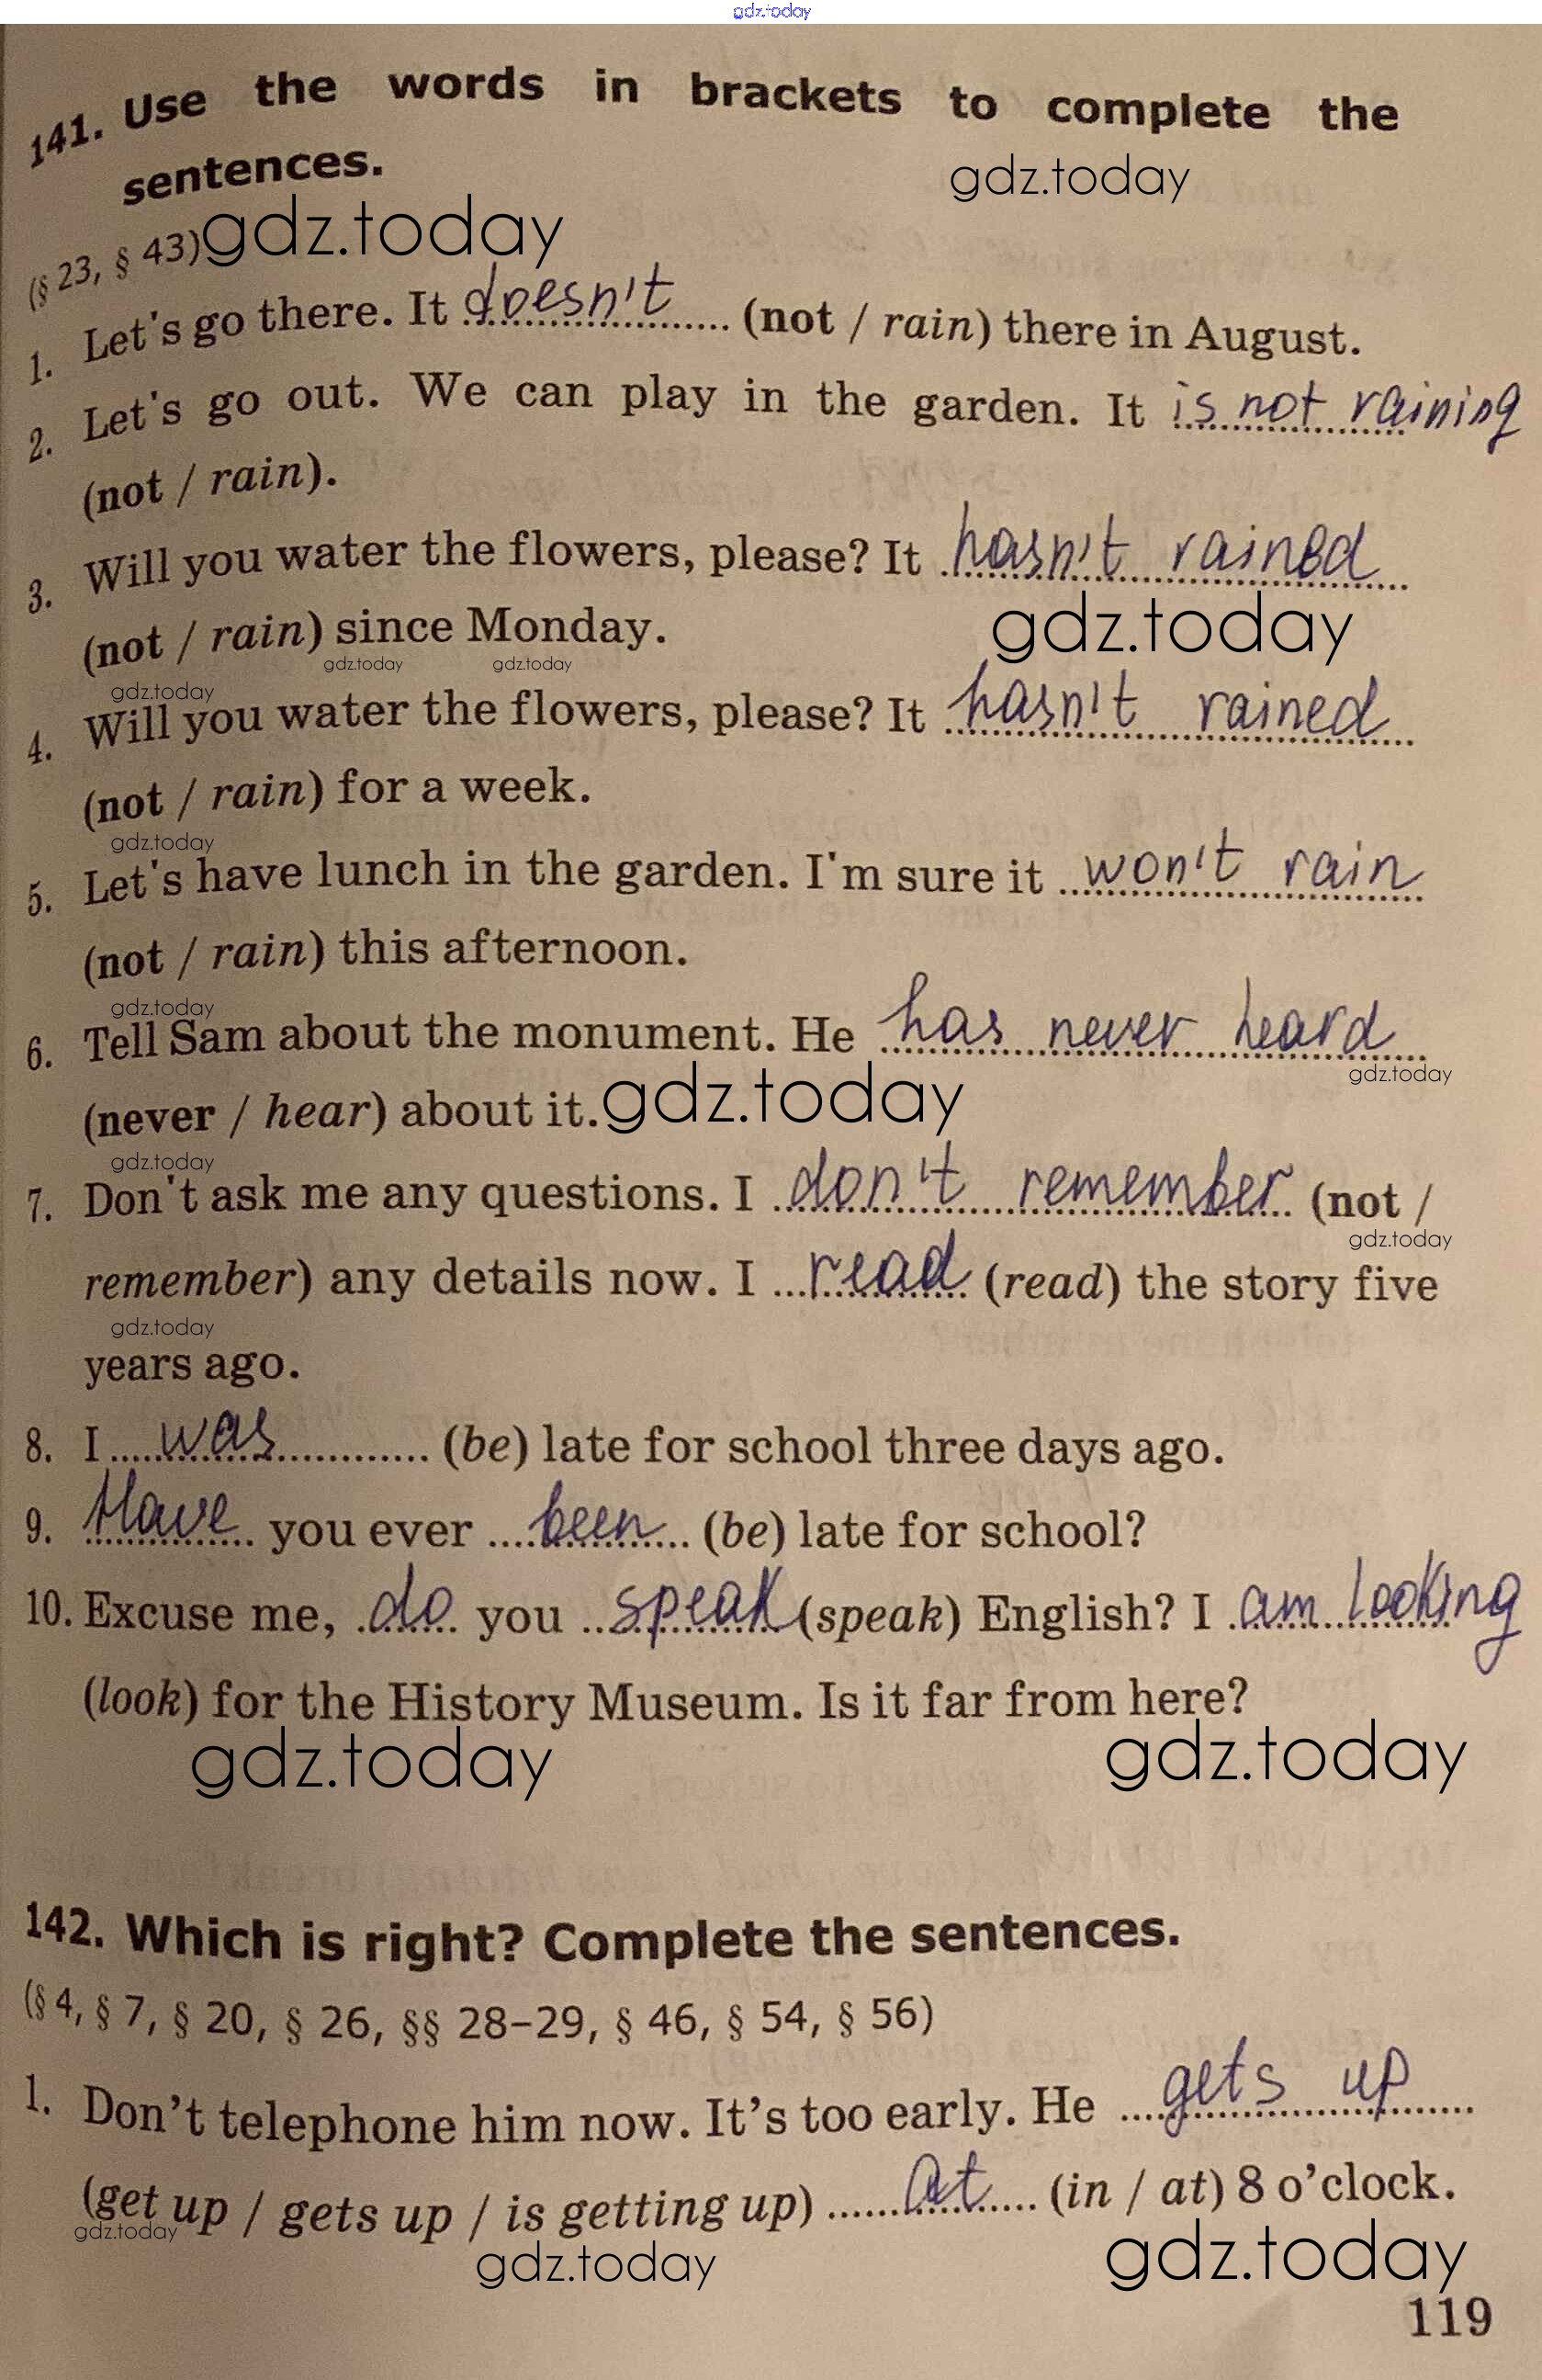 gdz.today
141. Use the words in brackets to complete the
sentences.
gdz.today
(§ 23, § 43) gdz.today
1. Let's go there. It doesn't (not / rain) there in August.
2. Let's go out. We can play in the garden. It is not raining
(not / rain).
3. Will you water the flowers, please? It hasn't rained
gdz.today
(not / rain) since Monday.
gdz.today gdz.today
gdz.today
4. Will you water the flowers, please? It hasn't rained
(not / rain) for a week.
gdz.today
5. Let's have lunch in the garden. I'm sure it won't rain
(not / rain) this afternoon.
gdz.today
6. Tell Sam about the monument. He has never heard
gdz.today
(never / hear) about it. gdz.today
gdz.today
7. Don't ask me any questions. I don't remember (not /
gdz.today
remember) any details now. I read (read) the story five
gdz.today
years ago.
8. I was (be) late for school three days ago.
9. Have you ever been (be) late for school?
10. Excuse me, do you speak (speak) English? I am looking
(look) for the History Museum. Is it far from here?
gdz.today gdz.today
142. Which is right? Complete the sentences.
(§ 4, § 7, § 20, § 26, §§ 28–29, § 46, § 54, § 56)
1. Don't telephone him now. It's too early. He gets up
(get up / gets up / is getting up) at (in / at) 8 o'clock.
gdz.today
gdz.today gdz.today
119